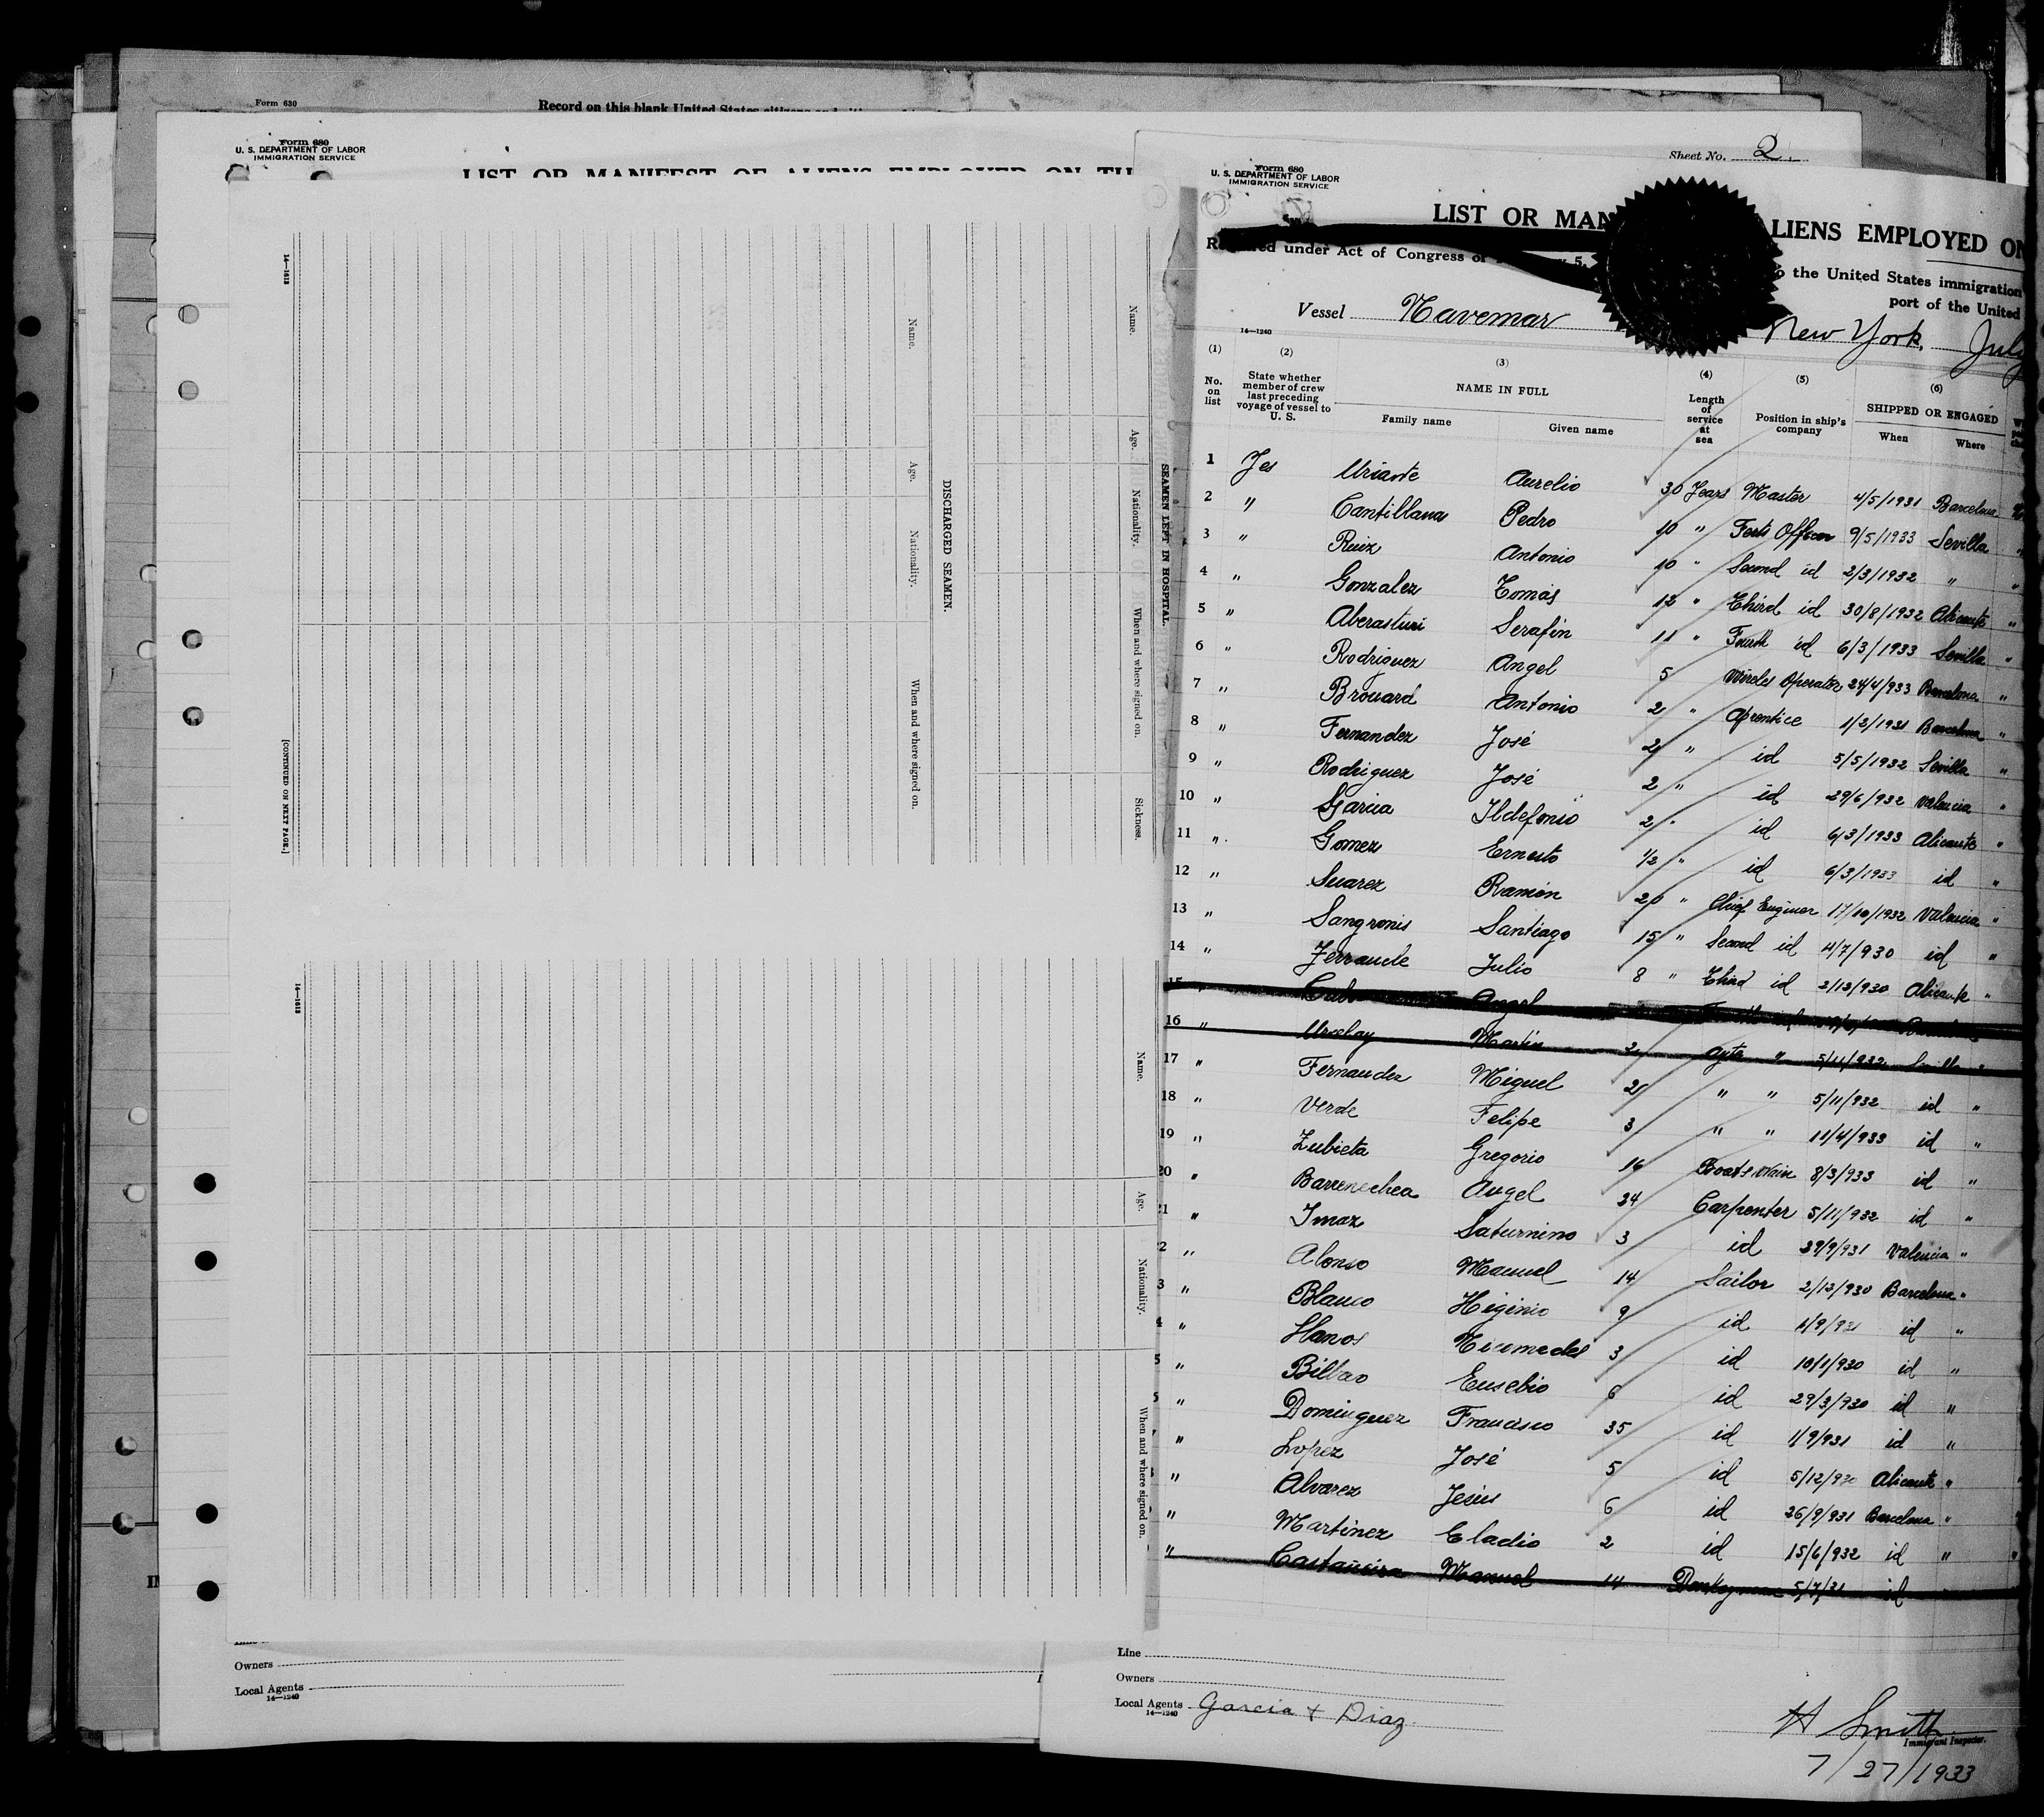 Form 630
Record on this blank United States citizens
Form 680
U. S. DEPARTMENT OF LABOR
IMMIGRATION SERVICE
LIST OR MANIFEST OF ALIENS EMPLOYED ON TH
14—1613
Name.
Age.
Nationality.
When and where signed on.
[CONTINUED ON NEXT PAGE.]
DISCHARGED SEAMEN.
Name.
Age.
Nationality.
When and where signed on.
Sickness.
SEAMEN LEFT IN HOSPITAL.
14—1613
Name.
Age.
Nationality.
When and where signed on.
Owners
Local Agents
14—1240
Sheet No. 2.
Form 680
U. S. DEPARTMENT OF LABOR
IMMIGRATION SERVICE
LIST OR MAN LIENS EMPLOYED ON
under Act of Congress of y 5, the United States immigration
port of the United
Vessel Navemar New York, July
14—1240
(1) (2) (3) (4) (5) (6)
No. on list
State whether member of crew last preceding voyage of vessel to U. S.
NAME IN FULL
Family name Given name
Length of service at sea
Position in ship's company
SHIPPED OR ENGAGED
When Where
1 Yes Uriarte Aurelio 30 Years Master 4/5/1931 Barcelona
2 " Cantillana Pedro 10 " Officer 9/5/1933 Sevilla "
3 " Ruiz Antonio 10 " Second id 2/3/1932 " "
4 " Gonzalez Tomás 12 " Third id 30/8/1932 Alicante "
5 " Aberasturi Serafin 11 " Fourth id 6/3/1933 Sevilla "
6 " Rodriguez Angel 5 Wireles Operator 24/4/933 Barcelona "
7 " Brouard Antonio 2 " Aprentice 1/2/1931 Barcelona "
8 " Fernandez José 2 " id 5/5/1932 Sevilla "
9 " Rodriguez José 2 " id 29/6/932 Valencia "
10 " Garcia Ildefonso 2 " id 6/3/1933 Alicante "
11 " Gomez Ernesto 1/2 " id 6/3/1933 id "
12 " Suarez Ramón 20 " Chief Enginer 17/10/1932 Valencia "
13 " Sangronis Santiago 15 " Second id 4/7/930 id "
14 " Ferrande Julio 8 " Third id 2/13/930 Alicante "
15 " Angel
16 " Urselay Martin 2 Ayte " 5/11/932 Sevilla "
17 " Fernandez Miguel 2 " " 5/11/932 id "
18 " Verde Felipe 3 " " 11/4/933 id "
19 " Zubieta Gregorio 16 Boatswain 8/3/933 id "
20 " Barrenechea Angel 24 Carpenter 5/11/932 id "
1 " Imaz Saturnino 3 id 29/9/931 Valencia "
2 " Alonso Manuel 14 Sailor 2/13/930 Barcelona "
3 " Blanco Higinio 9 id 1/9/931 id "
4 " Llanos Nicomedes 3 id 10/1/930 id "
5 " Bilbao Eusebio 6 id 29/3/930 id "
" Dominguez Francisco 35 id 1/9/931 id "
" Lopez José 5 id 5/12/930 Alicante "
" Alvarez Jesús 6 id 26/9/931 Barcelona "
" Martinez Eladio 2 id 15/6/932 id "
" Castañeira Manuel 14 Donkeyman 5/7/31 id "
Line
Owners
Local Agents Garcia & Diaz.
14—1240
H Smith
Immigrant Inspector.
7/27/1933